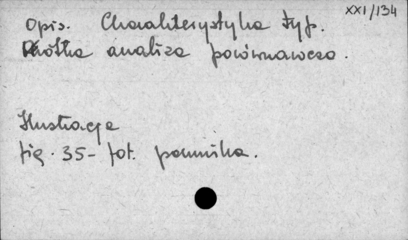 XXI/134
Opis. Charakterystyka typ.
Krótka analiza porównawcza.
Ilustracja
fig. 35 - fot. pomnika.